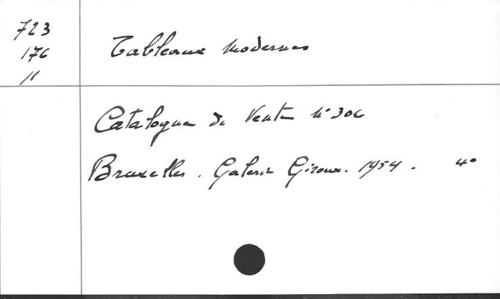 723
176
11
Tableaux Modernes
Catalogue de Vente N° 306
Bruxelles. Galerie Giroux. 1954. 4°